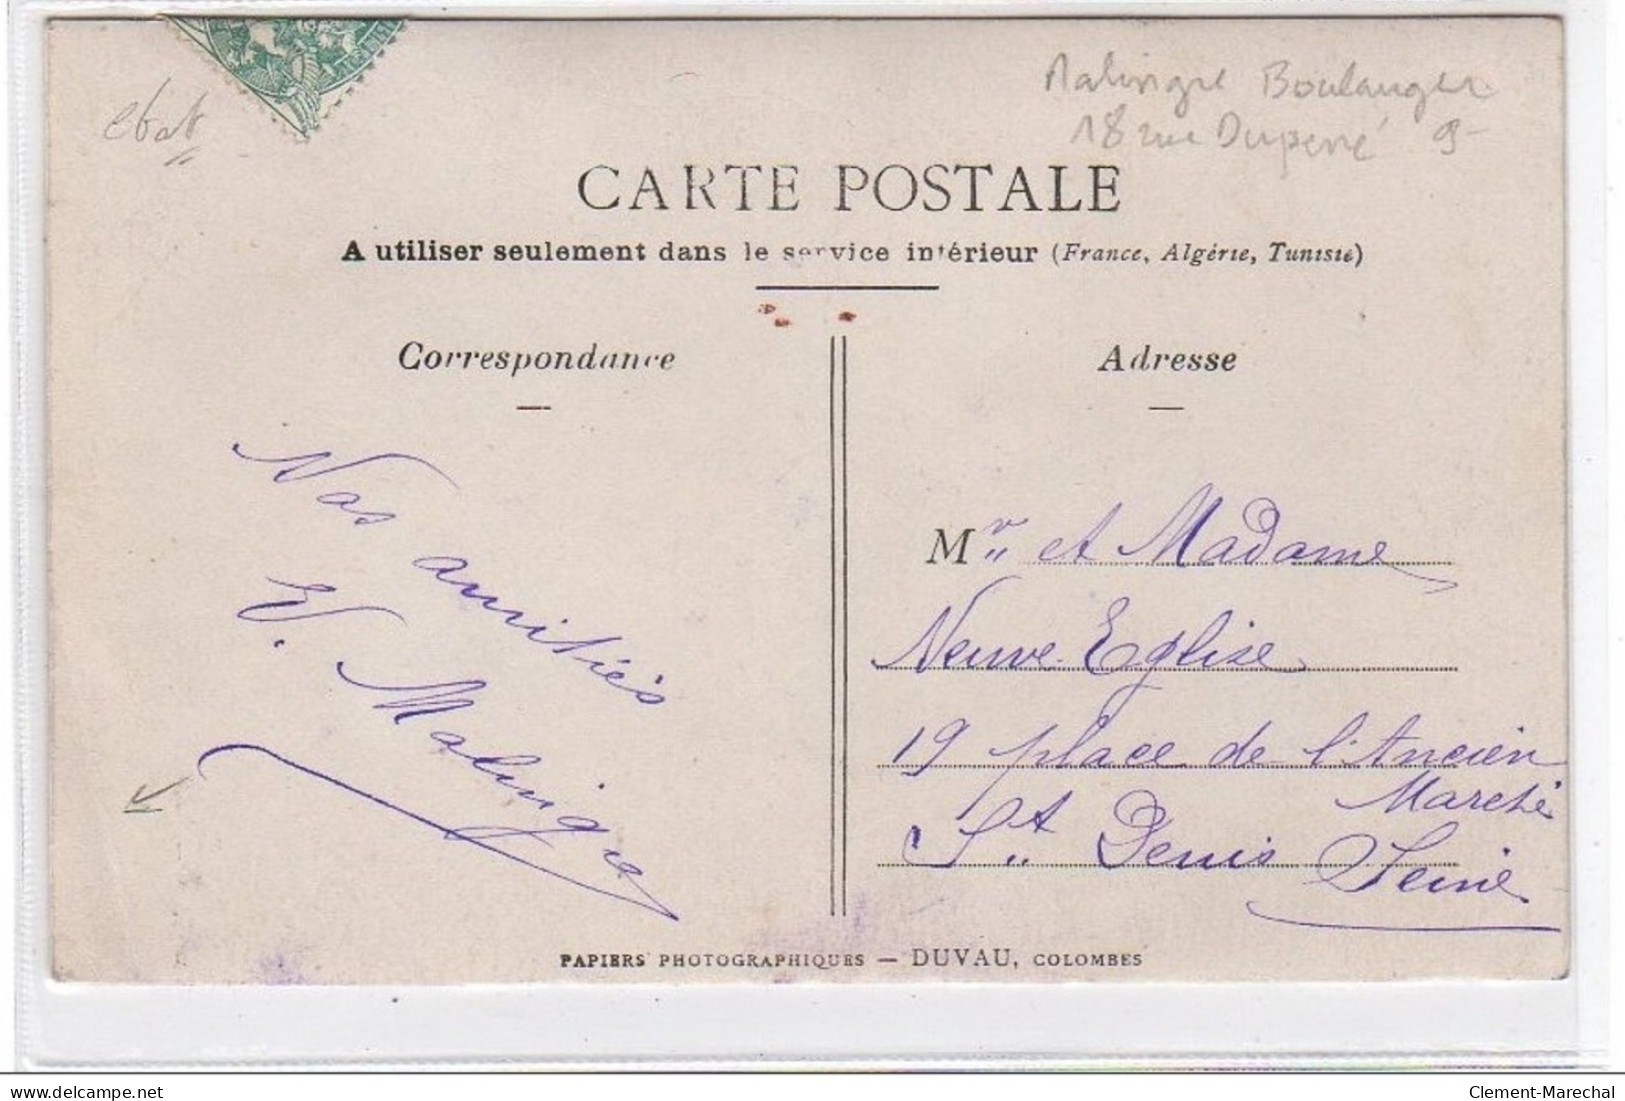 Malingre Boulanger
18 rue Duperré 9-
état
CARTE POSTALE
A utiliser seulement dans le service intérieur (France, Algérie, Tunisie)
Correspondance
Nos amitiés
E. Malingre
Adresse
Mr et Madame
Neuve-Eglise
19 place de l'Ancien
Marché
St Denis Seine
PAPIERS PHOTOGRAPHIQUES — DUVAU, COLOMBES
delcampe.net
Clement-Marechal